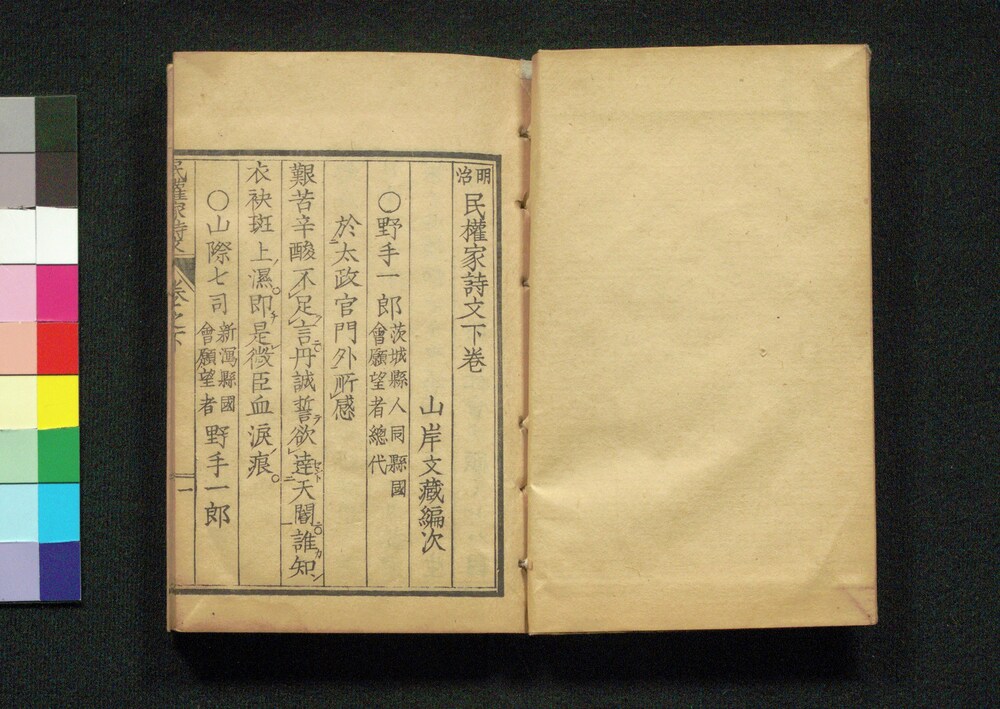 明治民權家詩文下卷
山岸文藏編次
○野手一郎 茨城縣人同縣國會願望者總代
於太政官門外所感
艱苦辛酸不足言丹誠誓欲達天閽誰知
衣袂斑上濕即是微臣血淚痕
○山際七司 新潟縣國會願望者 野手一郎
民權家詩文 卷之下 一